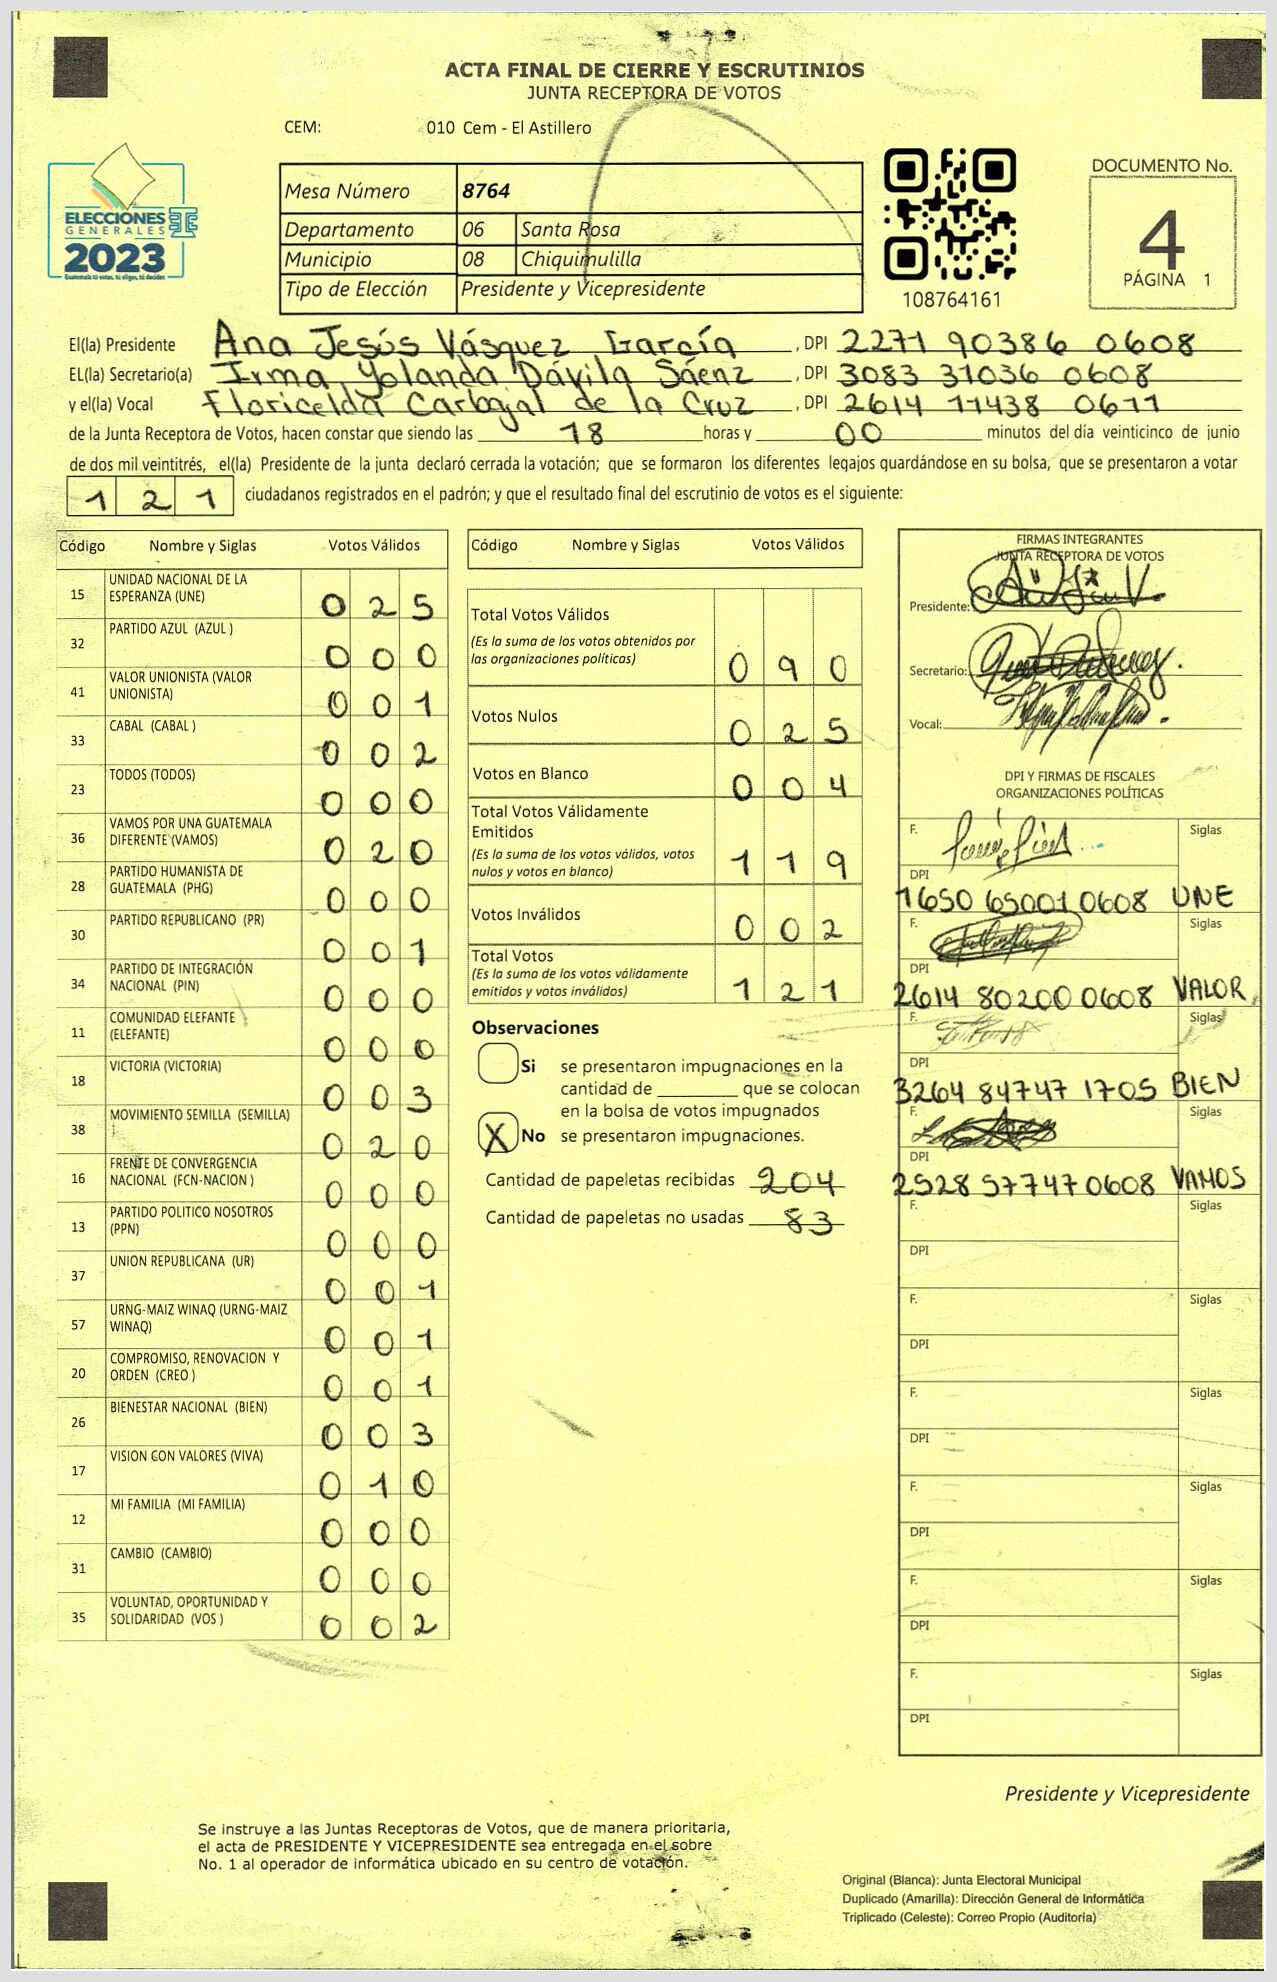 ACTA FINAL DE CIERRE Y ESCRUTINIOS
JUNTA RECEPTORA DE VOTOS
CEM: 010 Cem - El Astillero
ELECCIONES
GENERALES
2023
Guatemala tú votas, tú eliges, tú decides
Mesa Número 8764
Departamento 06 Santa Rosa
Municipio 08 Chiquimulilla
Tipo de Elección Presidente y Vicepresidente
108764161
DOCUMENTO No.
4
PÁGINA 1
El(la) Presidente Ana Jesús Vásquez García, DPI 2271 90386 0608
EL(la) Secretario(a) Irma Yolanda Dávila Sáenz, DPI 3083 31036 0608
y el(la) Vocal Floricelda Carbajal de la Cruz, DPI 2614 11438 0611
de la Junta Receptora de Votos, hacen constar que siendo las 18 horas y 00 minutos del día veinticinco de junio
de dos mil veintitrés, el(la) Presidente de la junta declaró cerrada la votación; que se formaron los diferentes legajos quardándose en su bolsa, que se presentaron a votar
121 ciudadanos registrados en el padrón; y que el resultado final del escrutinio de votos es el siguiente:
Código Nombre y Siglas Votos Válidos
15 UNIDAD NACIONAL DE LA ESPERANZA (UNE) 025
32 PARTIDO AZUL (AZUL ) 000
41 VALOR UNIONISTA (VALOR UNIONISTA) 001
33 CABAL (CABAL ) 002
23 TODOS (TODOS) 000
36 VAMOS POR UNA GUATEMALA DIFERENTE (VAMOS) 020
28 PARTIDO HUMANISTA DE GUATEMALA (PHG) 000
30 PARTIDO REPUBLICANO (PR) 001
34 PARTIDO DE INTEGRACIÓN NACIONAL (PIN) 000
11 COMUNIDAD ELEFANTE (ELEFANTE) 000
18 VICTORIA (VICTORIA) 003
38 MOVIMIENTO SEMILLA (SEMILLA) 020
16 FRENTE DE CONVERGENCIA NACIONAL (FCN-NACION ) 000
13 PARTIDO POLITICO NOSOTROS (PPN) 000
37 UNION REPUBLICANA (UR) 001
57 URNG-MAIZ WINAQ (URNG-MAIZ WINAQ) 001
20 COMPROMISO, RENOVACION Y ORDEN (CREO ) 001
26 BIENESTAR NACIONAL (BIEN) 003
17 VISION CON VALORES (VIVA) 010
12 MI FAMILIA (MI FAMILIA) 000
31 CAMBIO (CAMBIO) 000
35 VOLUNTAD, OPORTUNIDAD Y SOLIDARIDAD (VOS ) 002
Código Nombre y Siglas Votos Válidos
Total Votos Válidos
(Es la suma de los votos obtenidos por
las organizaciones políticas) 090
Votos Nulos 025
Votos en Blanco 004
Total Votos Válidamente
Emitidos
(Es la suma de los votos válidos, votos
nulos y votos en blanco) 119
Votos Inválidos 002
Total Votos
(Es la suma de los votos válidamente
emitidos y votos inválidos) 121
Observaciones
Si se presentaron impugnaciones en la
cantidad de ________ que se colocan
en la bolsa de votos impugnados
X No se presentaron impugnaciones.
Cantidad de papeletas recibidas 204
Cantidad de papeletas no usadas 83
FIRMAS INTEGRANTES
JUNTA RECEPTORA DE VOTOS
Presidente:
Secretario:
Vocal:
DPI Y FIRMAS DE FISCALES
ORGANIZACIONES POLÍTICAS
F. Siglas
DPI 1650 65001 0608 UNE
F. Siglas
DPI 2614 80200 0608 VALOR
F. Siglas
DPI 3264 84747 1705 BIEN
F. Siglas
DPI 2528 57747 0608 VAMOS
F. Siglas
DPI
F. Siglas
DPI
F. Siglas
DPI
F. Siglas
DPI
F. Siglas
DPI
F. Siglas
DPI
Presidente y Vicepresidente
Se instruye a las Juntas Receptoras de Votos, que de manera prioritaria,
el acta de PRESIDENTE Y VICEPRESIDENTE sea entregada en el sobre
No. 1 al operador de informática ubicado en su centro de votación.
Original (Blanca): Junta Electoral Municipal
Duplicado (Amarilla): Dirección General de Informática
Triplicado (Celeste): Correo Propio (Auditoría)